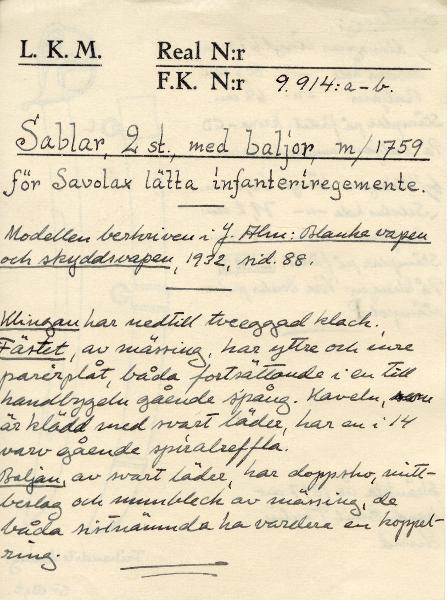 L. K. M. Real N:r
F.K. N:r 9.914:a-b.
Sablar, 2 st., med baljor, m/1759
för Savolax lätta infanteriregemente.
Modellen beskriven i J. Alm: Blanka vapen
och skyddsvapen, 1932, sid. 88.
Klingan har nedtill tveeggad klack.
Fästet, av mässing, har yttre och inre
parérplåt, båda fortsättande i en till
handbygeln gående spång. Kaveln,
är klädd med svart läder, har en i 14
varv gående spiralreffla.
Baljan, av svart läder, har doppsko, mitt-
beslag och munbleck av mässing, de
båda sistnämnda ha vardera en koppel-
ring.